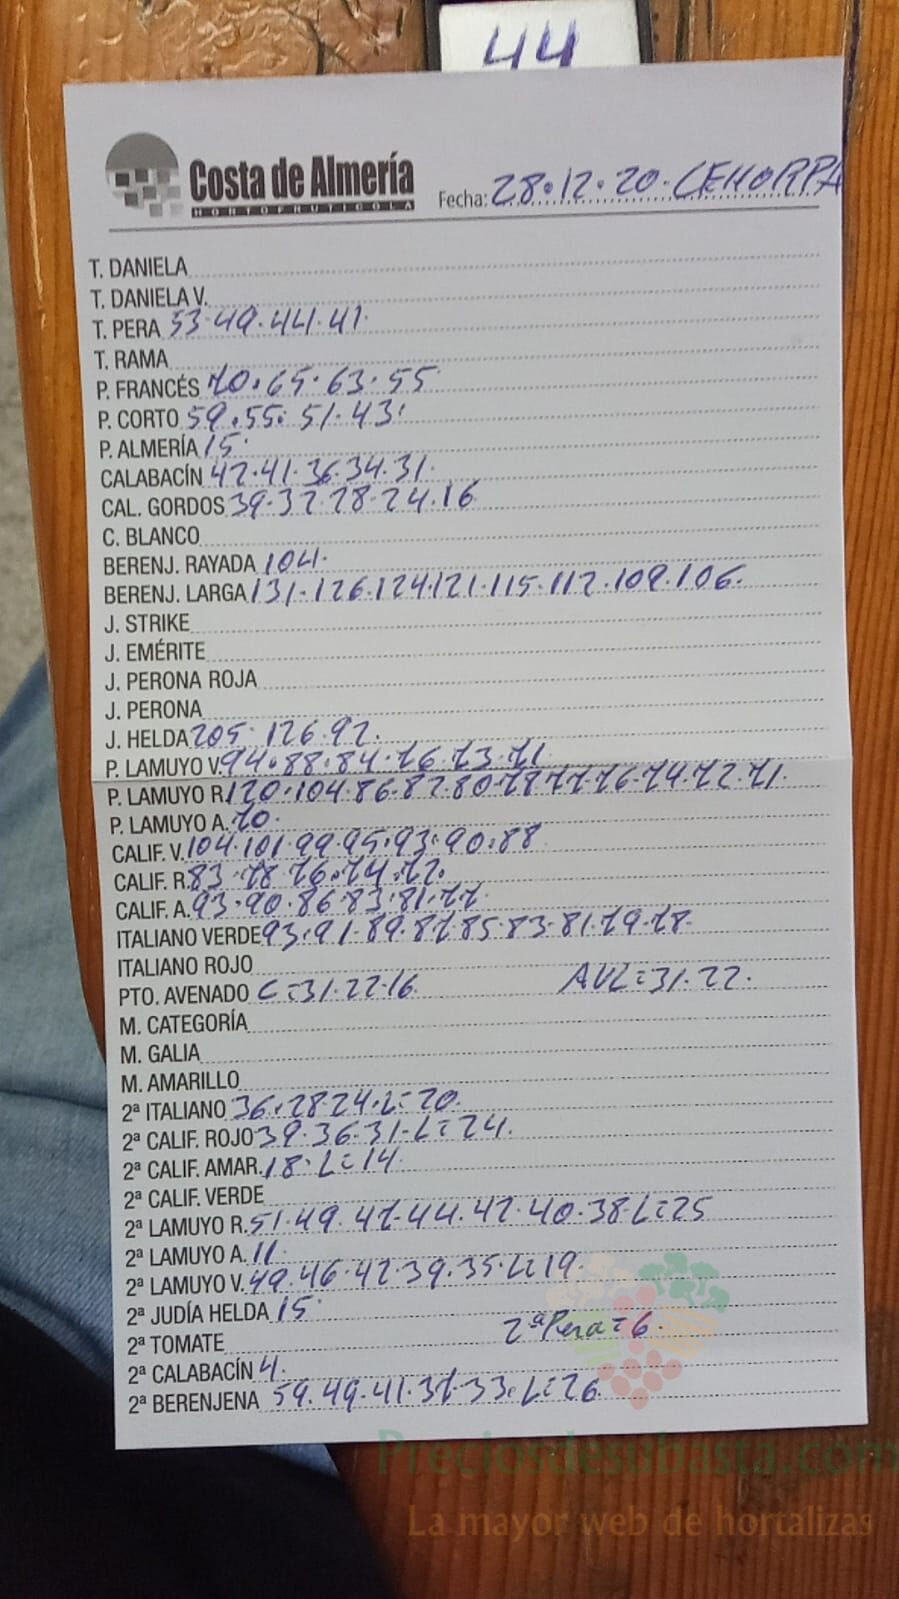 44
Costa de Almería
HORTOFRUTICOLA
Fecha: 28.12.20. CEHORPA
T. DANIELA
T. DANIELA V.
T. PERA 53.49.44.41.
T. RAMA
P. FRANCÉS 70.65.63.55
P. CORTO 59.55.51.43.
P. ALMERÍA 15.
CALABACÍN 42.41.36.34.31.
CAL. GORDOS 39.32.28.24.16
C. BLANCO
BERENJ. RAYADA 104.
BERENJ. LARGA 131.126.124.121.115.112.109.106.
J. STRIKE
J. EMÉRITE
J. PERONA ROJA
J. PERONA
J. HELDA 205.126.92.
P. LAMUYO V. 94.88.84.76.73.71
P. LAMUYO R. 120.104.86.82.80.78.77.76.74.72.71.
P. LAMUYO A. 70.
CALIF. V. 104.101.99.95.93.90.88
CALIF. R. 83.78.76.74.72.
CALIF. A. 93.90.86.83.81.77
ITALIANO VERDE 93.91.89.87.85.83.81.79.78.
ITALIANO ROJO
PTO. AVENADO C=31.22.16. AVL=31.22.
M. CATEGORÍA
M. GALIA
M. AMARILLO
2ª ITALIANO 36.28.24.L=20.
2ª CALIF. ROJO 39.36.31.L=24.
2ª CALIF. AMAR. 18.L=14.
2ª CALIF. VERDE
2ª LAMUYO R. 51.49.47.44.42.40.38.L=25
2ª LAMUYO A. 11.
2ª LAMUYO V. 49.46.42.39.35.L=19.
2ª JUDÍA HELDA 15.
2ª TOMATE 2ª Pera=6.
2ª CALABACÍN 4.
2ª BERENJENA 59.49.41.37.33.L=26
Preciosdesubasta.com
La mayor web de hortalizas